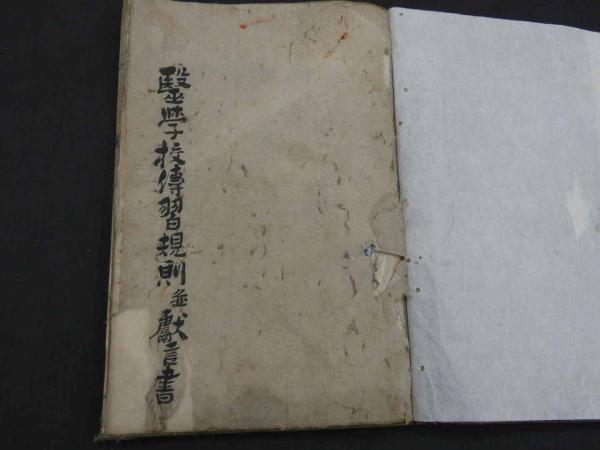 醫学校傳習規則並献言書